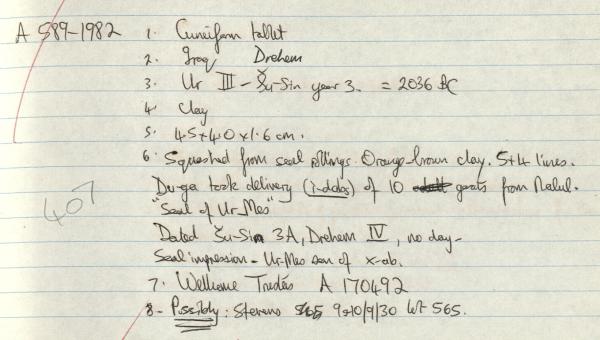 A 589-1982 1. Cuneiform tablet
2. Iraq Drehem
3. Ur III - Šu-Sin year 3. = 2036 BC
4. Clay
5. 4.5 x 4.0 x 1.6 cm.
6. Squashed from seal rollings. Orange-brown clay. 5+4 lines.
Du-ga took delivery (ì-dab₅) of 10 goats from Nalul.
"Seal of Ur-Mes"
407
Dated Šu-Sin 3A, Drehem IV, no day -
Seal impression - Ur-Mes son of x-ab.
7. Wellcome Trustees A 170492
8 - Possibly: Stevens 9+10/9/30 Lot 565.